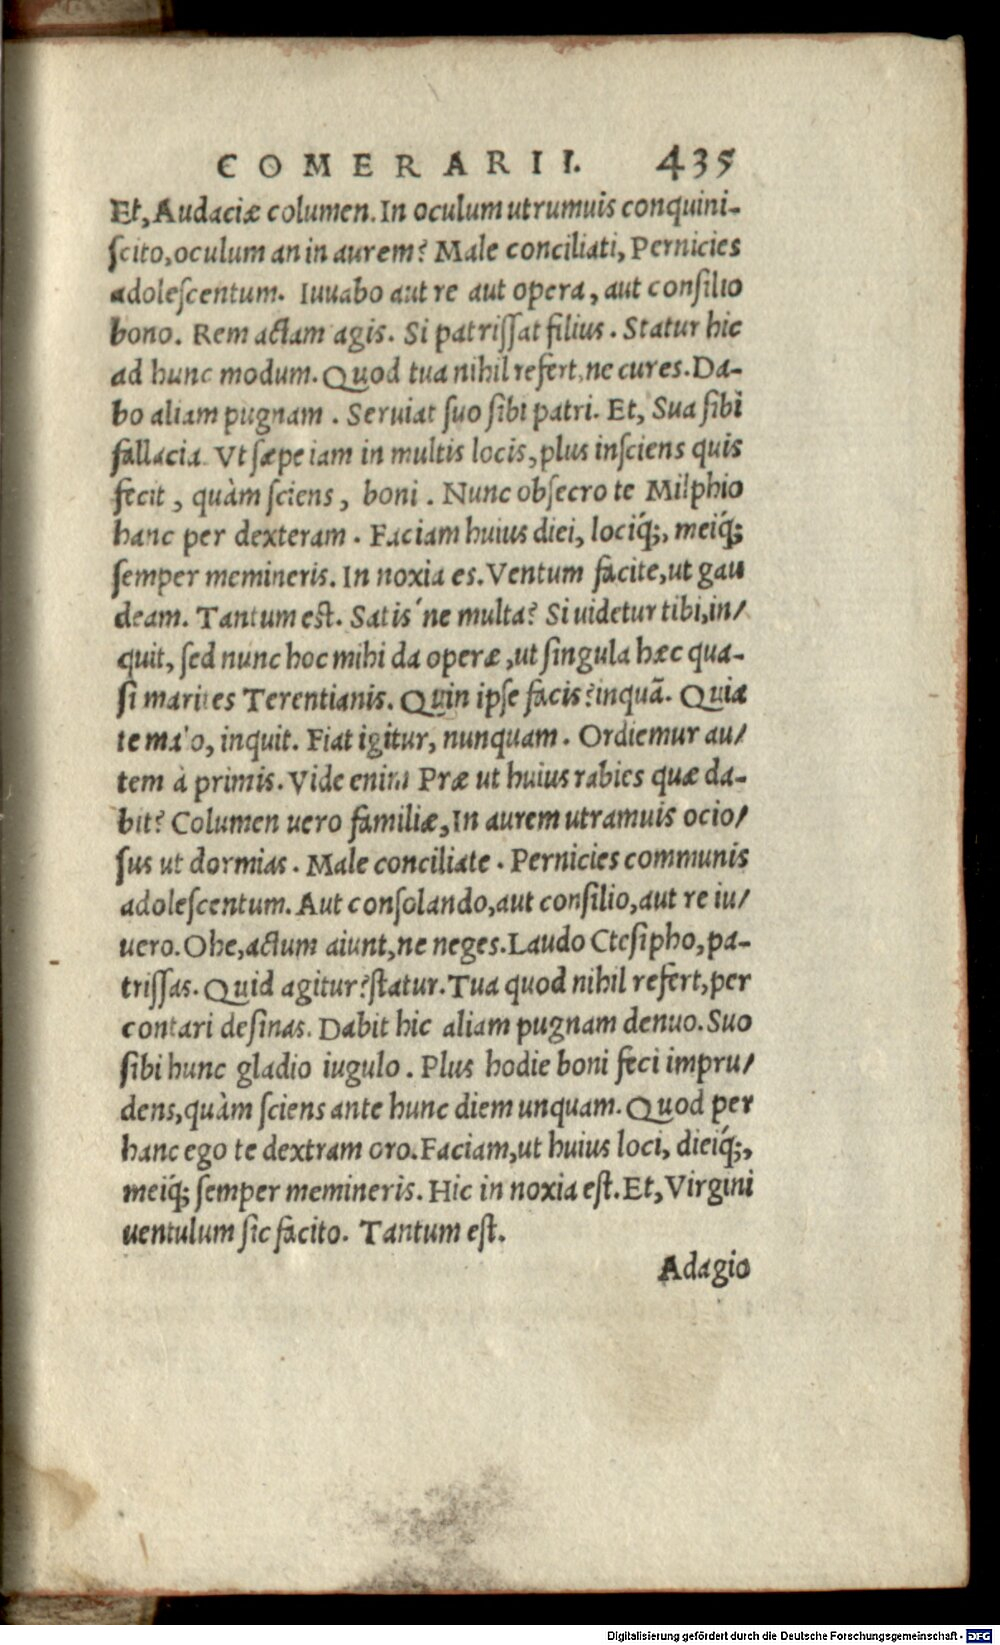 COMERARII. 435
Et, Audaciæ columen. In oculum utrumuis conquini-
ſcito, oculum an in aurem? Male conciliati, Pernicies
adoleſcentum. Iuuabo aut re aut opera, aut conſilio
bono. Rem actam agis. Si patriſſat filius. Statur hic
ad hunc modum. Quod tua nihil refert, ne cures. Da-
bo aliam pugnam. Seruiat ſuo ſibi patri. Et, Sua ſibi
fallacia. Vt ſæpe iam in multis locis, plus inſciens quis
fecit, quàm ſciens, boni. Nunc obſecro te Milphio
hanc per dexteram. Faciam huius diei, lociq́;, meiq́;
semper memineris. In noxia es. Ventum facite, ut gau
deam. Tantum est. Satis´ne multa? Si uidetur tibi, in/
quit, ſed nunc hoc mihi da operæ, ut ſingula hæc qua-
ſi marites Terentianis. Quin ipſe facis? inquā. Quia
te malo, inquit. Fiat igitur, nunquam. Ordiemur au/
tem à primis. Vide enim Præ ut huius rabies quæ da-
bit? Columen uero familiæ, In aurem utramuis ocio/
ſus ut dormias. Male conciliate. Pernicies communis
adoleſcentum. Aut conſolando, aut conſilio, aut re iu/
uero. Ohe, actum aiunt, ne neges. Laudo Cteſipho, pa-
triſſas. Quid agitur? ſtatur. Tua quod nihil refert, per
contari deſinas. Dabit hic aliam pugnam denuo. Suo
ſibi hunc gladio iugulo. Plus hodie boni feci impru/
dens, quàm ſciens ante hunc diem unquam. Quod per
hanc ego te dextram oro. Faciam, ut huius loci, dieiq́;,
meiq́; ſemper memineris. Hic in noxia eſt. Et, Virgini
uentulum ſic facito. Tantum eſt.
Adagio
Digitalisierung gefördert durch die Deutsche Forschungsgemeinschaft - DFG